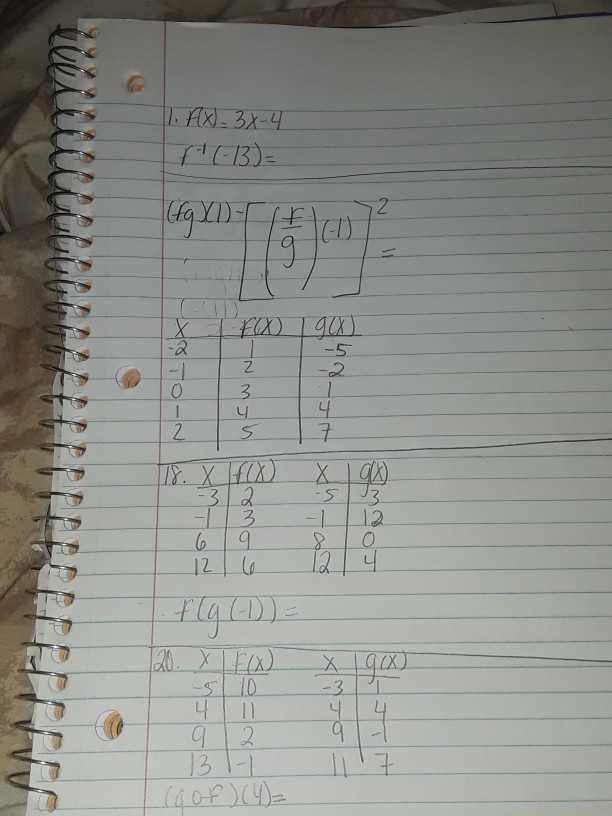 1. f(x) = 3x-4
f⁻¹(-13) =
(fg)(1) - [(f/g)(-1)]² =
x f(x) g(x)
-2 1 -5
-1 2 -2
0 3 1
1 4 4
2 5 7
18. x f(x) x g(x)
-3 2 -5 3
-1 3 -1 12
6 9 8 0
12 6 12 4
f(g(-1)) =
20. x f(x) x g(x)
-5 10 -3 1
4 11 4 4
9 2 9 -1
13 -1 11 7
(g o f)(4) =